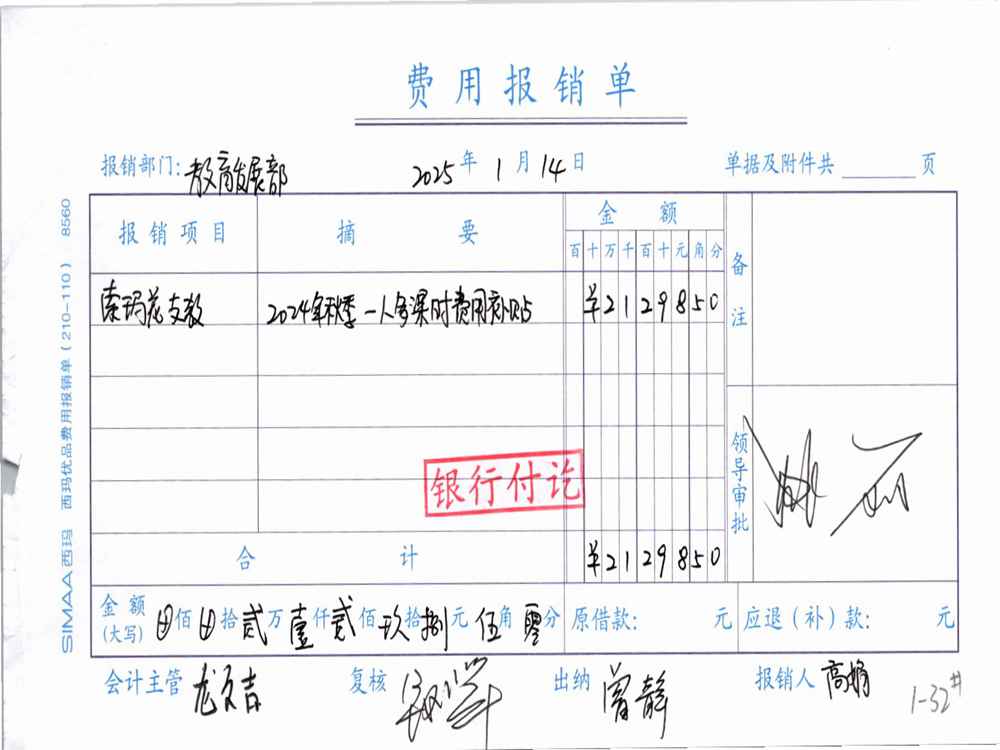 费用报销单
报销部门: 教育发展部 2025年1月14日 单据及附件共 页
报销项目 摘要 金额 备注
百十万千百十元角分
索玛花支教 2024年秋季一人多课时费用补贴 ¥2129850
银行付讫
领导审批
合计 ¥2129850
金额(大写) 佰 拾贰万壹仟贰佰玖拾捌元伍角零分 原借款: 元 应退(补)款: 元
会计主管 复核 出纳 曾静 报销人 高娟
1-32#
SIMAA西玛 西玛优品费用报销单(210-110) 8560